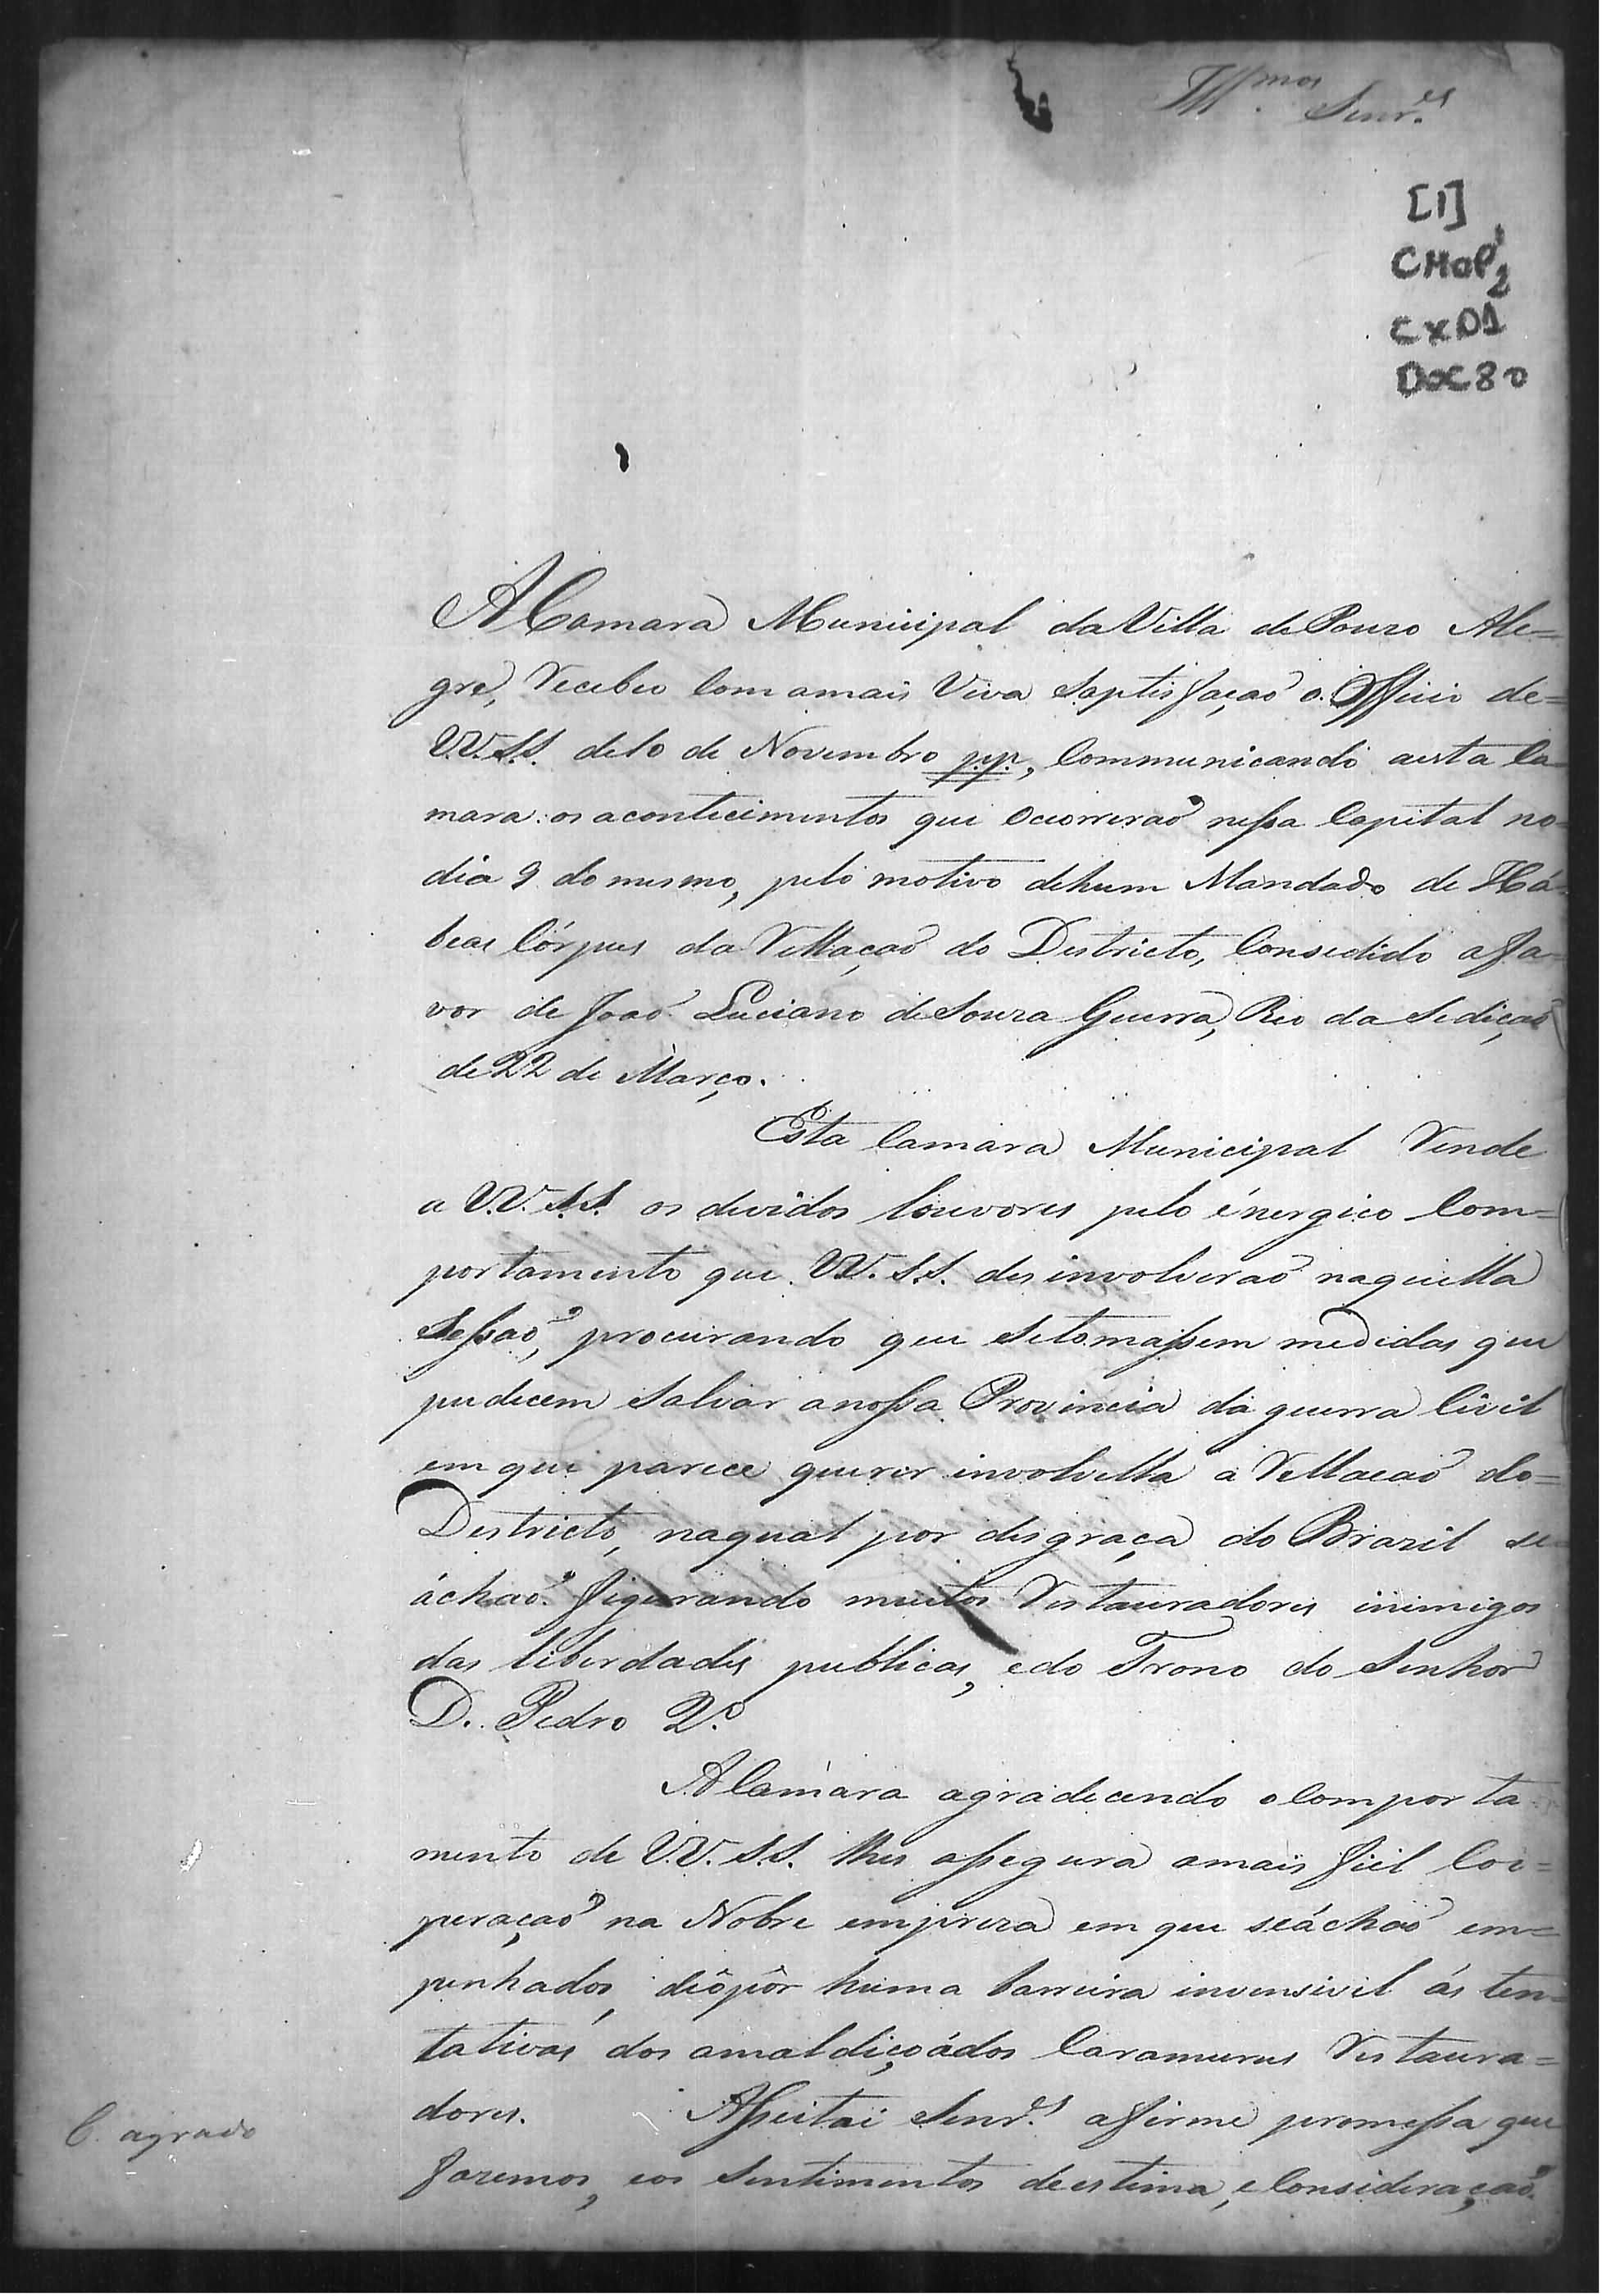 Illmos Senr.es
[1]
CMOP1
2
CX01
DOC80
A Camara Municipal da Villa de Pouzo Ale=
gre, Recebeo Com amais Viva Saptisfaçaõ o. Officio de=
V.V.S.S. de 10 de Novembro pp., Communicando aesta Ca
mara os acontecimentos que Ocorreraõ nessa Capital no
dia 9 do mesmo, pelo motivo dehum Mandado de Há
beas Córpus da Rellaçaõ do Destricto, Consedido afa
vor de Joaõ Luciano de Souza Guerra, Reo da Sediçaõ
de 22 de Março.
Esta Camara Municipal Rende
a V.V.S.S. os devidos louvores pelo énergico Com=
portamento que V.V.S.S. desinvolveraõ naquella
Sessaõ, procurando que Setomassem medidas que
pudecem Salvar anossa Provincia da guerra Civil
em que parece querer involvella a Rellacaõ do=
Destricto, naqual por disgraça do Brazil se
áchaõ figurando muitos Restauradores inimigos
das liberdades publicas, edo Trono do Senhor
D. Pedro 2.º
A Camara agradecendo oComporta
mento de V.V.S.S. lhes assegura amais fiel Coo=
peraçaõ na Nobre empreza em que seáchaõ em=
penhados, déôpôr huma barreira invensivel ás ten=
tativas dos amaldiçoádos Caramurus Restaura=
dores. Asseitai Senr.es afirme promessa que
fazemos, eos Sentimentos deestima, e Consideraçaõ.
C. agrado